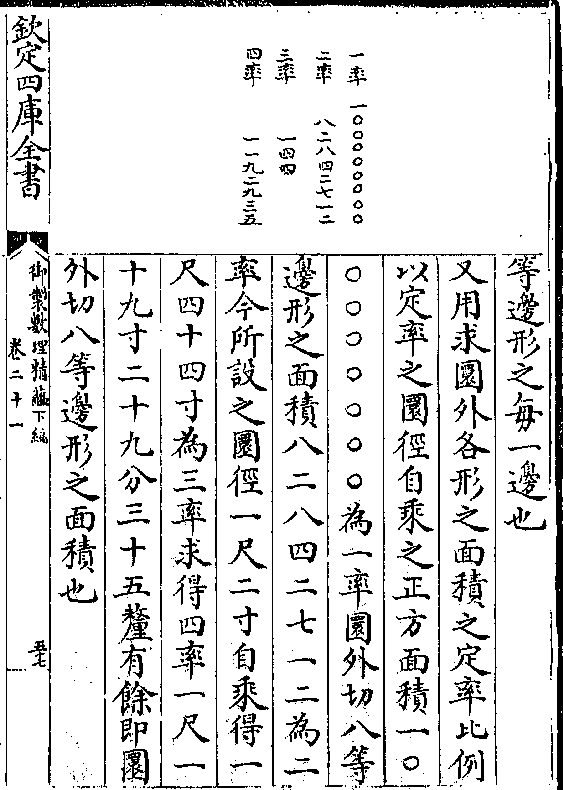 一率 一〇〇〇〇〇〇〇〇
二率 八二八四二七一二
三率 一四四
四率 一一九二九三五
等邊形之每一邊也
又用求圜外各形之面積之定率比例
以定率之圜徑自乘之正方面積一〇
〇〇〇〇〇〇〇為一率圜外切八等
邊形之面積八二八四二七一二為二
率今所設之圜徑一尺二寸自乘得一
尺四十四寸為三率求得四率一尺一
十九寸二十九分三十五釐有餘即圜
外切八等邊形之面積也
欽定四庫全書
御製數理精蘊下編
卷二十一